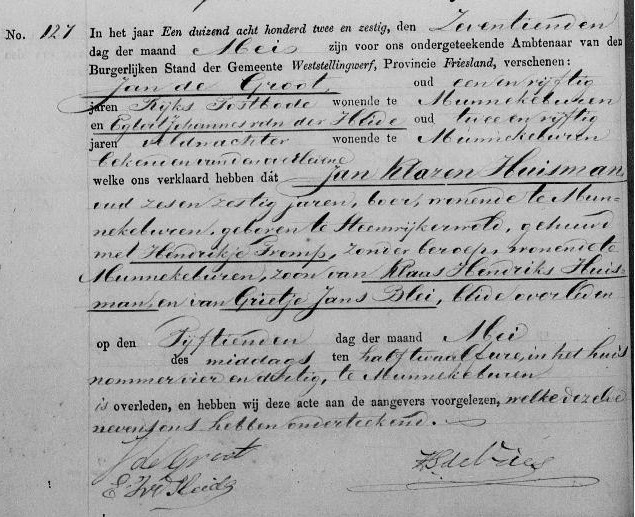 No. 127
In het jaar Een duizend acht honderd twee en zestig, den Zeventienden
dag der maand Mei zijn voor ons ondergeteekende Ambtenaar van den
Burgerlijken Stand der Gemeente Weststellingwerf, Provincie Friesland, verschenen:
Jan de Groot, oud een en vijftig
jaren Rijks Postbode wonende te Munnekeburen
en Egbert Johannes van der Heide oud twee en vijftig
jaren Veldwachter wonende te Munnekeburen
bekenden van den overledene
welke ons verklaard hebben dát Jan Klazen Huisman,
oud zes en zestig jaren, boer, wonende te Mun-
nekeburen, geboren te Steenwijkerwold, gehuwd
met Hendrikje Tromp, zonder beroep, wonende te
Munnekeburen, zoon van Klaas Hendriks Huis-
man, en van Grietje Jans Blei, beide overleden
op den Vijftienden dag der maand Mei
des middags ten half twaalf ure, in het huis
nommer vier en dertig, te Munnekeburen
is overleden, en hebben wij deze acte aan de aangevers voorgelezen, welke dezelve
nevens ons hebben onderteekend.
J de Groot
E J v d Heide
de Vries